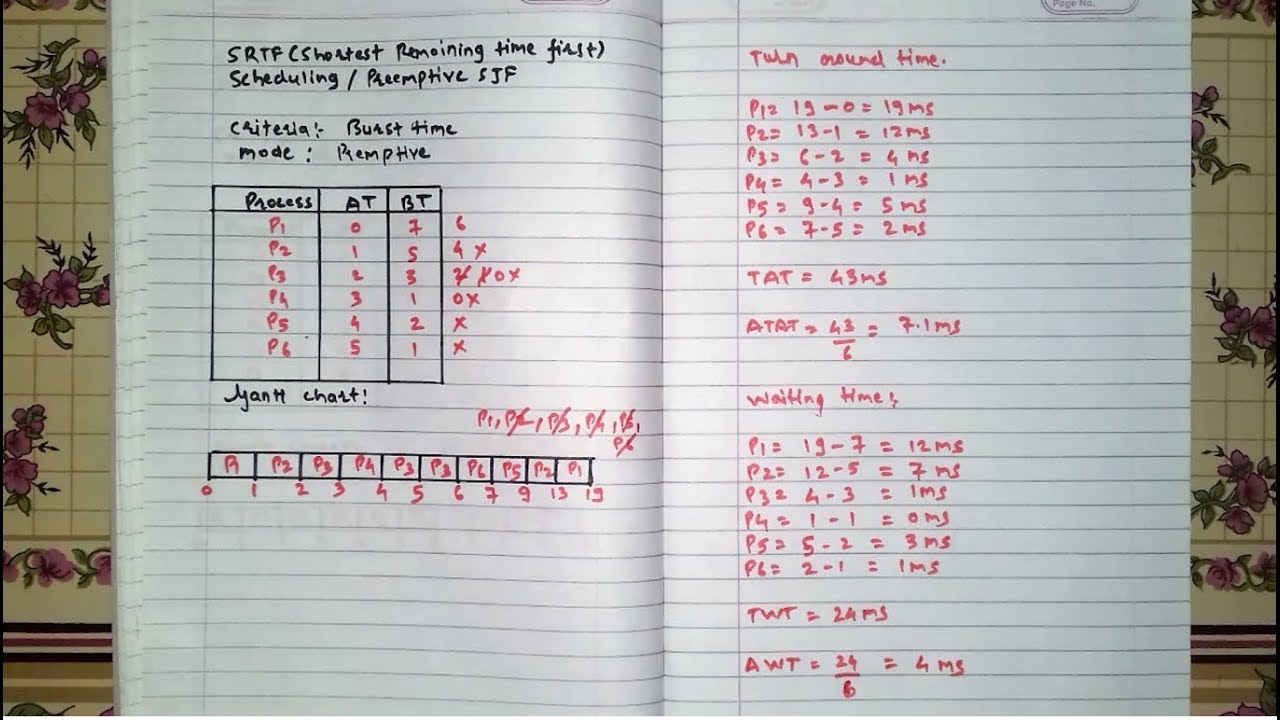 SRTF (Shortest Remaining time first)
Scheduling / Preemptive SJF
Criteria:- Burst time
mode : Premptive
Process AT BT
P1 0 7 6
P2 1 5 4 x
P3 2 3 2 1 0 x
P4 3 1 0 x
P5 4 2 x
P6 5 1 x
Gantt chart:
P1, P2, P3, P4, P5,
P6
P1 P2 P3 P4 P3 P3 P6 P5 P2 P1
0 1 2 3 4 5 6 7 9 13 19
Page No.
Turn around time.
P1= 19-0 = 19ms
P2= 13-1 = 12ms
P3= 6-2 = 4ms
P4= 4-3 = 1ms
P5= 9-4 = 5ms
P6= 7-5 = 2ms
TAT = 43ms
ATAT = 43/6 = 7.1ms
Waiting time:
P1= 19-7 = 12ms
P2= 12-5 = 7ms
P3= 4-3 = 1ms
P4= 1-1 = 0ms
P5= 5-2 = 3ms
P6= 2-1 = 1ms
TWT = 24ms
AWT = 24/6 = 4ms